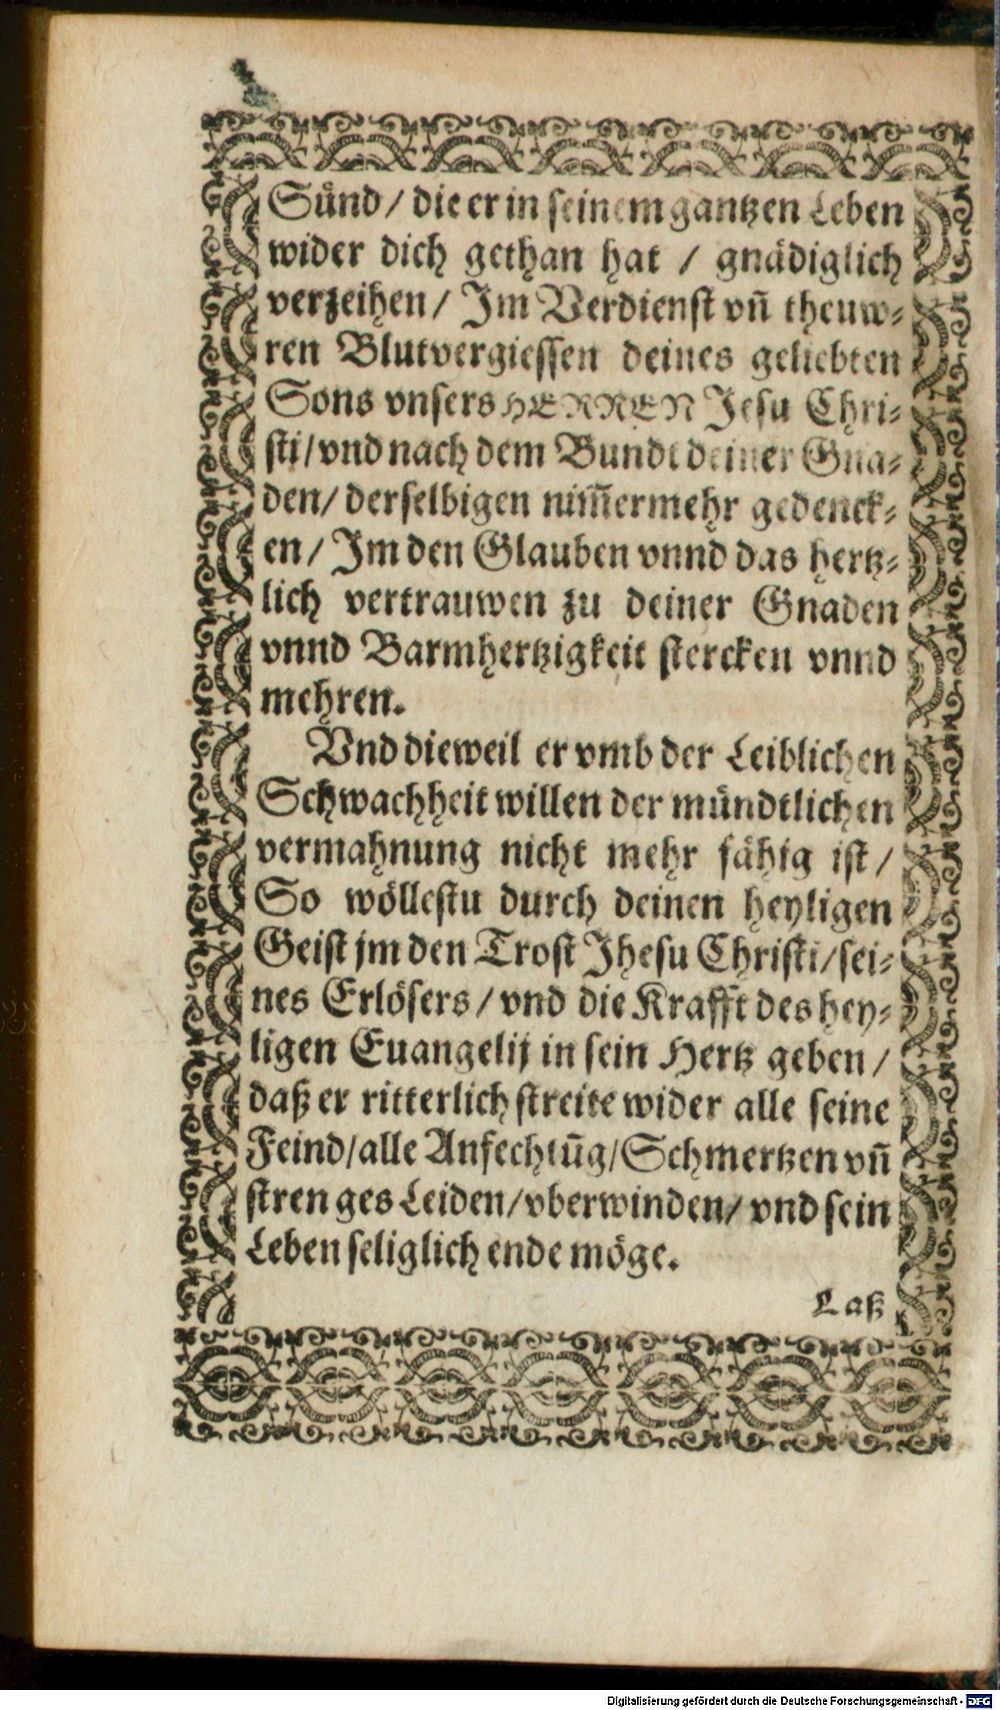 Sünd / die er in seinem gantzen Leben
wider dich gethan hat / gnädiglich
verzeihen / Im Verdienst vn̄ theuw⸗
ren Blutvergiessen deines geliebten
Sons vnsers HERREN Jesu Chri⸗
sti / vnd nach dem Bundt deiner Gna⸗
den / derselbigen nim̄ermehr gedenck⸗
en / Im den Glauben vnnd das hertz⸗
lich vertrauwen zu deiner Gnaden
vnnd Barmhertzigkeit stercken vnnd
mehren.
Vnd dieweil er vmb der Leiblichen
Schwachheit willen der mündtlichen
vermahnung nicht mehr fähig ist /
So wöllestu durch deinen heyligen
Geist jm den Trost Jhesu Christi / sei⸗
nes Erlösers / vnd die Krafft des hey⸗
ligen Euangelij in sein Hertz geben /
daß er ritterlich streite wider alle seine
Feind / alle Anfechtūg / Schmertzen vn̄
strenges Leiden / vberwinden / vnd sein
Leben seliglich ende möge.
Laß
Digitalisierung gefördert durch die Deutsche Forschungsgemeinschaft - DFG